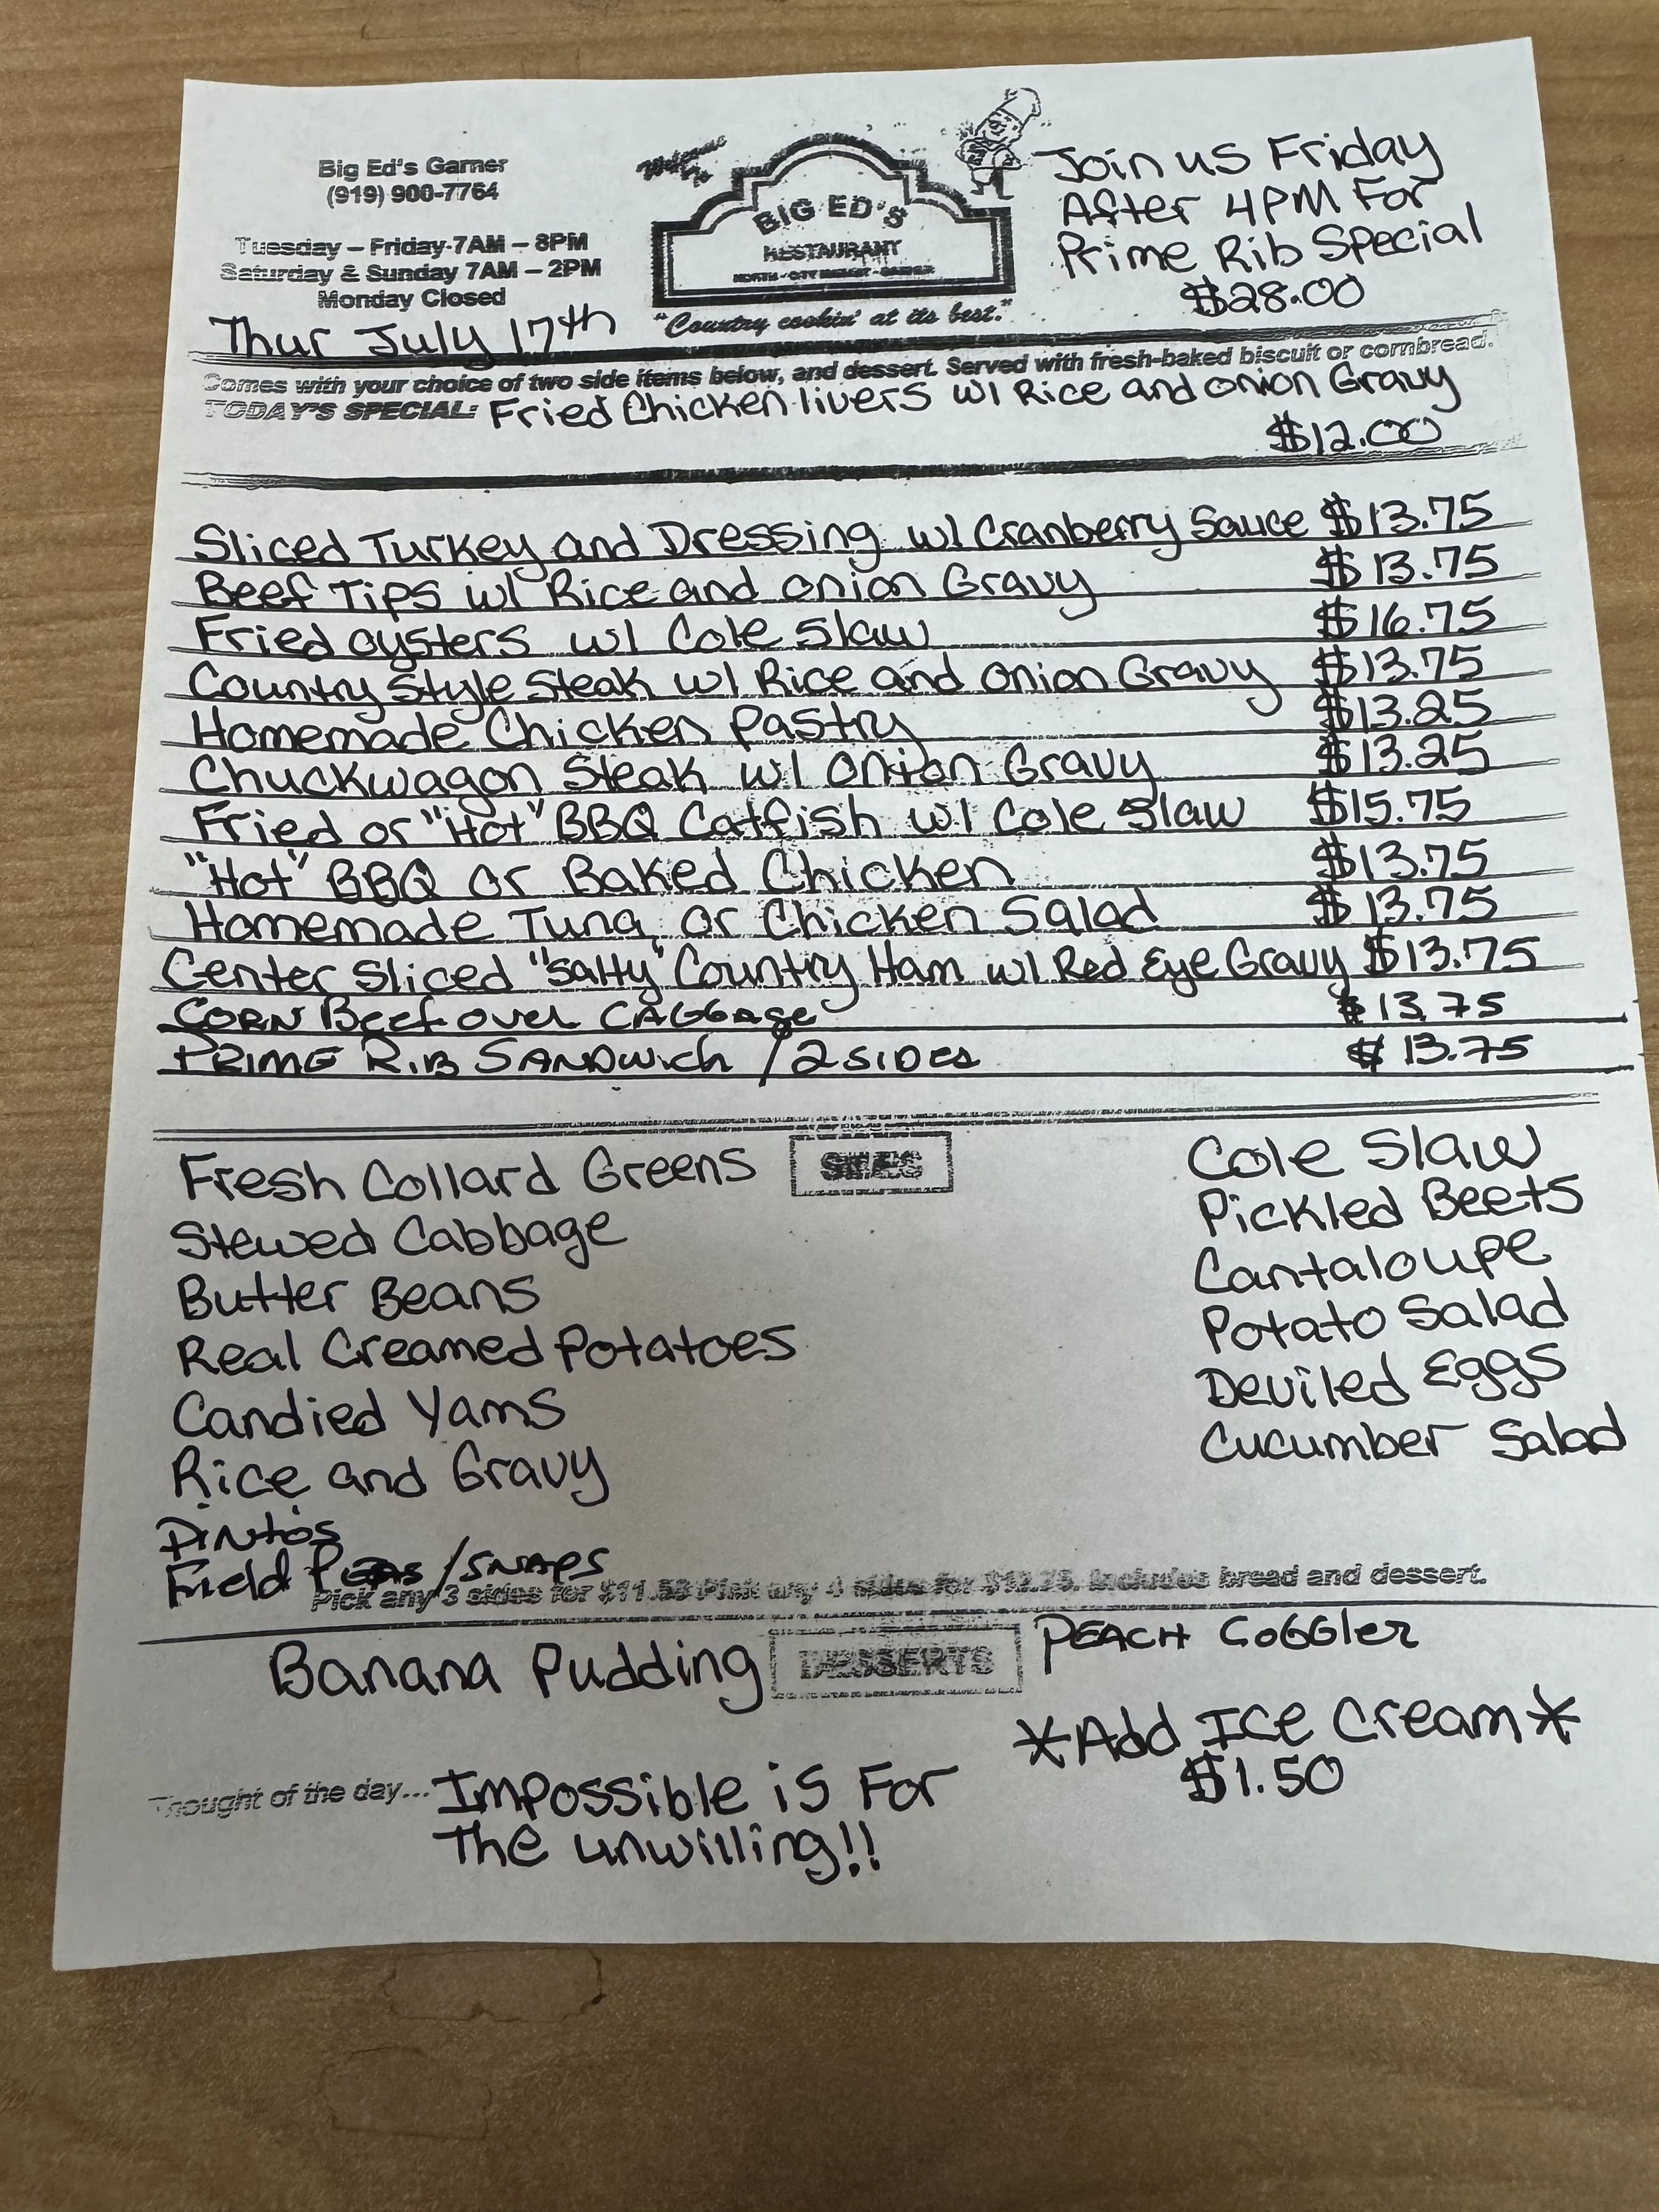 Big Ed's Garner
(919) 900-7764
Tuesday – Friday-7AM – 8PM
Saturday & Sunday 7AM – 2PM
Monday Closed
Thur July 17th
Welcome To
BIG ED'S
RESTAURANT
NORTH - CITY MARKET - GARNER
"Country cookin' at its best."
Join us Friday
After 4PM For
Prime Rib Special
$28.00
Comes with your choice of two side items below, and dessert. Served with fresh-baked biscuit or cornbread.
TODAY'S SPECIAL: Fried Chicken livers w/ Rice and onion Gravy
$12.00
Sliced Turkey and Dressing w/ Cranberry Sauce $13.75
Beef Tips w/ Rice and onion Gravy $13.75
Fried oysters w/ Cole Slaw $16.75
Country Style Steak w/ Rice and onion Gravy $13.75
Homemade Chicken Pastry $13.25
Chuckwagon Steak w/ onion Gravy $13.25
Fried or "Hot" BBQ Catfish w/ Cole Slaw $15.75
"Hot" BBQ or Baked Chicken $13.75
Homemade Tuna, or Chicken Salad $13.75
Center Sliced "Salty" Country Ham w/ Red Eye Gravy $13.75
CORN Beef over CABBage $13.75
PRIME RIB SANDWich /2 SIDES $13.75
SIDES
Fresh Collard Greens
Stewed Cabbage
Butter Beans
Real Creamed Potatoes
Candied Yams
Rice and Gravy
Pintos
Field Peas /SNAPS
Cole Slaw
Pickled Beets
Cantaloupe
Potato Salad
Deviled Eggs
Cucumber Salad
Pick any 3 sides for Pick any 4 sides for Includes bread and dessert.
DESSERTS
Banana Pudding
PEACH CoBBler
*Add Ice Cream*
$1.50
Thought of the day... Impossible is For
The unwilling!!